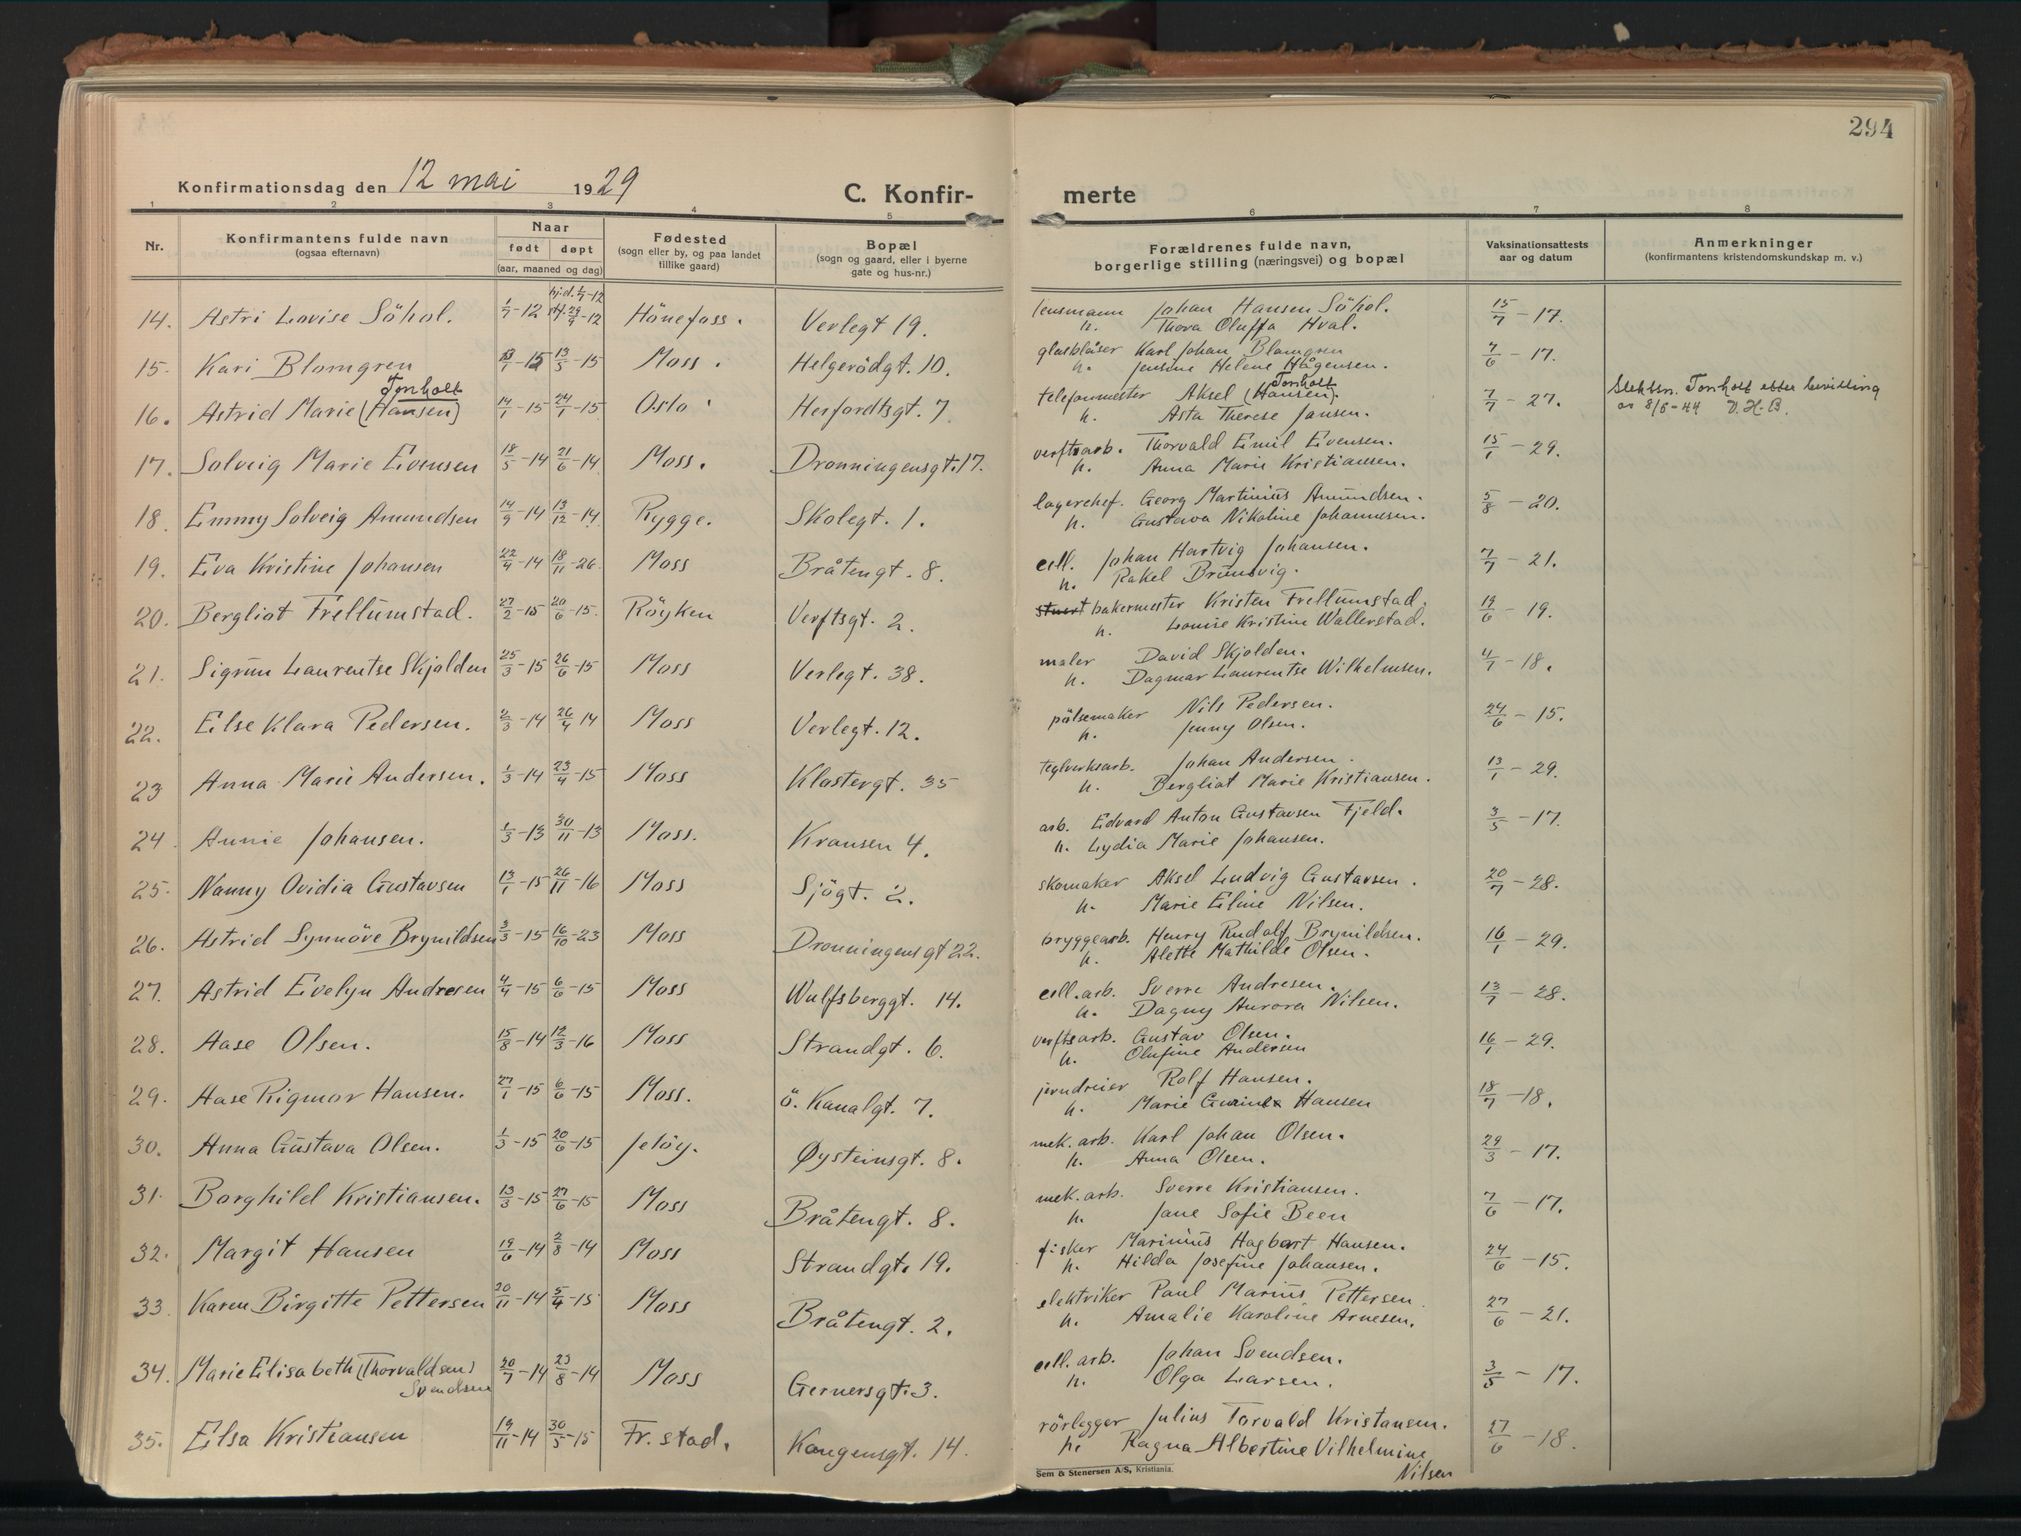 294
Konfirmationsdag den 12 mai 1929 C. Konfir- merte
1 2 3 4 5 6 7 8
Nr. Konfirmantens fulde navn (ogsaa efternavn) Naar født døpt (aar, maaned og dag) Fødested (sogn eller by, og paa landet tillike gaard) Bopæl (sogn og gaard, eller i byerne gate og hus-nr.) Forældrenes fulde navn, borgerlige stilling (næringsvei) og bopæl Vaksinationsattests aar og datum Anmerkninger (konfirmantens kristendomskundskap m. v.)
14. Astri Lovise Söhol. 1/7-12 hj.d. 1/7-12 st. 29/9-12 Hönefoss. Verlegt 19. lensmann Johan Hansen Söhol. 15/7-17.
h. Thora Oluffa Hval.
15. Kari Blomgren -15 13/5-15 Moss. Helgerödgt. 10. glasblåser Karl Johan Blomgren 7/6-17.
h. Jensine Helene Hågensen.
Tonholt Tonholt
16. Astrid Marie (Hansen) 14/1-15 24/1-15 Oslo Herfordtsgt. 7 telefonmester Aksel (Hansen). 7/7-27. Slektsn. Tonholt efter bevilling
h. Asta Therese Jansen. av 8/6-44 D.H.B.
17. Solveig Marie Evensen 18/5-14 21/6-14. Moss. Dronningensgt. 17. verftsarb. Thorvald Emil Evensen. 15/1-29.
h. Anna Marie Kristiansen.
18. Emmy Solveig Amundsen 14/9-14 13/12-14. Rygge. Skolegt. 1. lagerchef. Georg Martinius Amundsen. 5/8-20.
h. Gustava Nikoline Johannesen.
19. Eva Kristine Johansen 22/9-14 18/11-26. Moss Bråtengt. 8. cell. Johan Hartvig Johansen. 7/7-21.
h. Rakel Brunsvig.
20. Bergliot Frellumstad. 27/2-15 20/6-15. Röyken Verftsgt. 2. stuert bakermester Kristen Frellumstad. 19/6-19.
h. Louise Kristine Wallerstad.
21. Sigrun Laurentse Skjolden 25/3-15 26/6-15 Moss Verlegt. 38. maler David Skjolden. 4/7-18.
h. Dagmar Laurentse Wilhelmsen.
22. Else Klara Pedersen. 2/3-14 26/4 14 Moss Verlegt. 12. pölsemaker Nils Pedersen. 24/6-15.
h. Jenny Olsen.
23 Anna Marie Andersen. 1/3-14 23/4-15 Moss Klostergt. 35 teglverksarb. Johan Andersen. 13/1-29.
h. Bergliot Marie Kristiansen.
24. Annie Johansen. 1/3-13 30/11-13 Moss. Kransen 4. arb. Edvard Anton Gustavsen Fjeld. 3/5-17.
h. Lydia Marie Johansen.
25. Nanny Ovidia Gustavsen 13/1-15 26/11-16 Moss Sjögt. 2. skomaker Aksel Ludvig Gustavsen. 20/7-28.
h. Marie Eline Nilsen.
26. Astrid Synnöve Brynildsen 3/3-15 16/10-23 Moss Dronningensgt 22. bryggearb. Henry Rudolf Brynildsen. 16/1-29.
h. Alette Mathilde Olsen.
27. Astrid Evelyn Andresen 4/4-15 6/6-15 Moss Wulfsberggt. 14. cell. arb. Sverre Andresen. 13/7-28.
h. Dagny Aurora Nilsen.
28. Aase Olsen. 15/8-14 12/3-16 Moss Strandgt. 6. verftsarb. Gustav Olsen. 16/1-29.
h. Olufine Andersen
29. Aase Rigmor Hansen. 27/1-15 6/6-15 Moss. ö. Kanalgt. 7. jerndreier Rolf Hansen. 18/7-18.
h. Marie Hansen
30. Anna Gustava Olsen. 1/3-15 20/6-15 Jelöy. Øysteinsgt. 8. mek. arb. Karl Johan Olsen. 29/3-17.
h. Anna Olsen.
31. Borghild Kristiansen. 13/3-15 27/6-15 Moss Bråtengt. 8. mek. arb. Sverre Kristiansen. 7/6-17.
h. Jane Sofie Been
32. Margit Hansen 19/6-14 2/8-14 Moss Strandgt. 19. fisker Marinius Hagbart Hansen. 24/6-15.
h. Hilda Josefine Johansen.
33. Karen Birgitte Pettersen 20/11-14 5/4-15 Moss Bråtengt. 2. elektriker Paul Marius Pettersen 27/6-21.
h. Amalie Karoline Arnesen.
34. Marie Elisabeth (Thorvaldsen) 20/7-14 23/8-14 Moss Gernersgt. 3. cell. arb. Johan Svendsen. 3/5-17.
Svendsen h. Olga Larsen.
35. Elsa Kristiansen 19/11-14 30/5-15 Fr.stad. Kongensgt. 14. rörlegger Julius Torvald Kristansen. 27/6-18.
h. Ragna Albertine Vilhelmine
Nilsen
Sem & Stenersen A/S, Kristiania.